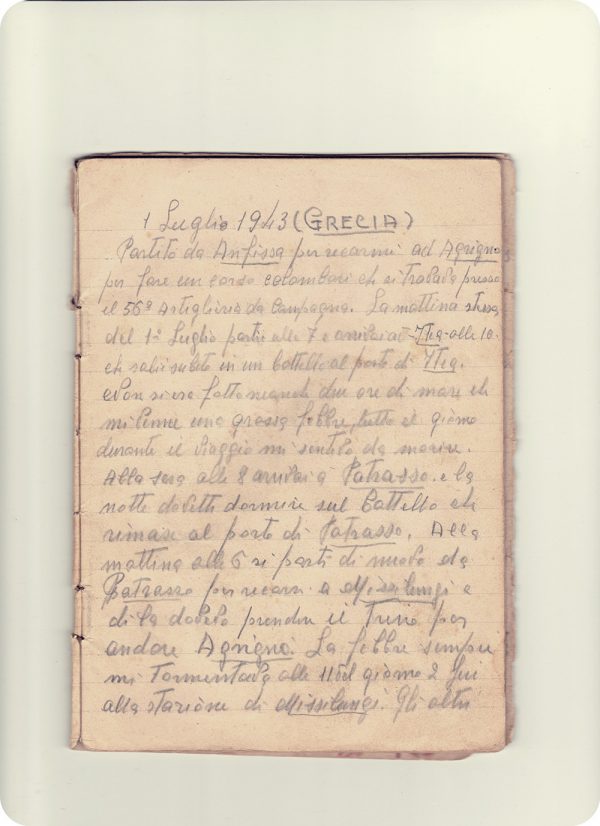 1 Luglio 1943 (GRECIA)
Partito da Anfissa per recarmi ad Agrigno
per fare un corso colombari che si trovava presso
il 56º Artiglieria da Campagna. La mattina stessa
del 1º Luglio partii alle 7 e arrivai at - Itea - alle 10.
che salii subito in un battello al porto di Itea.
Non si era fatto neanche due ore di mare che
mi venne una grossa febbre, tutto il giorno
durante il viaggio mi sentivo da morire.
Alla sera alle 8 arrivai a Patrasso. e la
notte dovetti dormire sul battello che
rimase al porto di Patrasso. Alla
mattina alle 6 si partì di nuovo da
Patrasso per recarsi a Missilungi e
di la dovevo prendere il Treno per
andare Agrigno. La febbre sempre
mi Tormentava alle 11 del giorno 2 fui
alla stazione di Missilungi. Gli altri